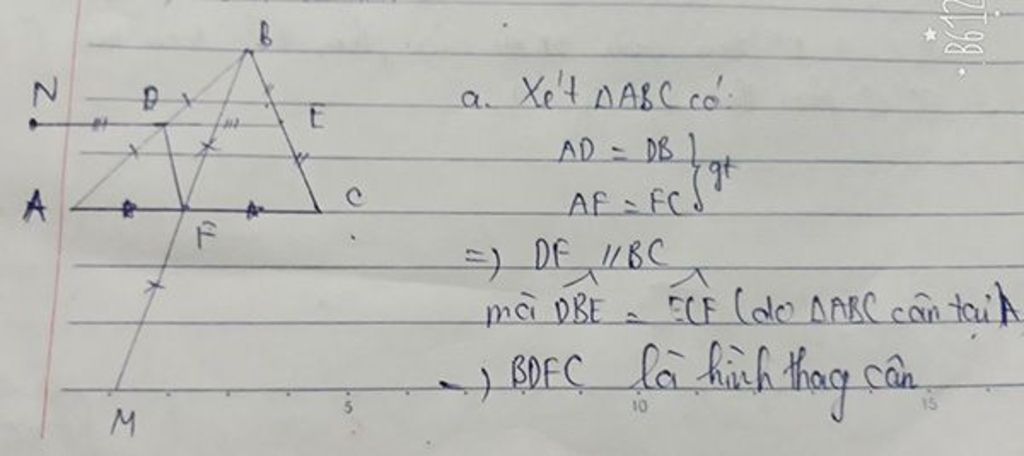 B612
B
N
D
E
A
C
F
M
a. Xét ΔABC có:
AD = DB } gt
AF = FC
=) DF // BC
mà DBE = ECF (do ΔABC cân tại A
=) BDFC là hình thag cân
5 10 15